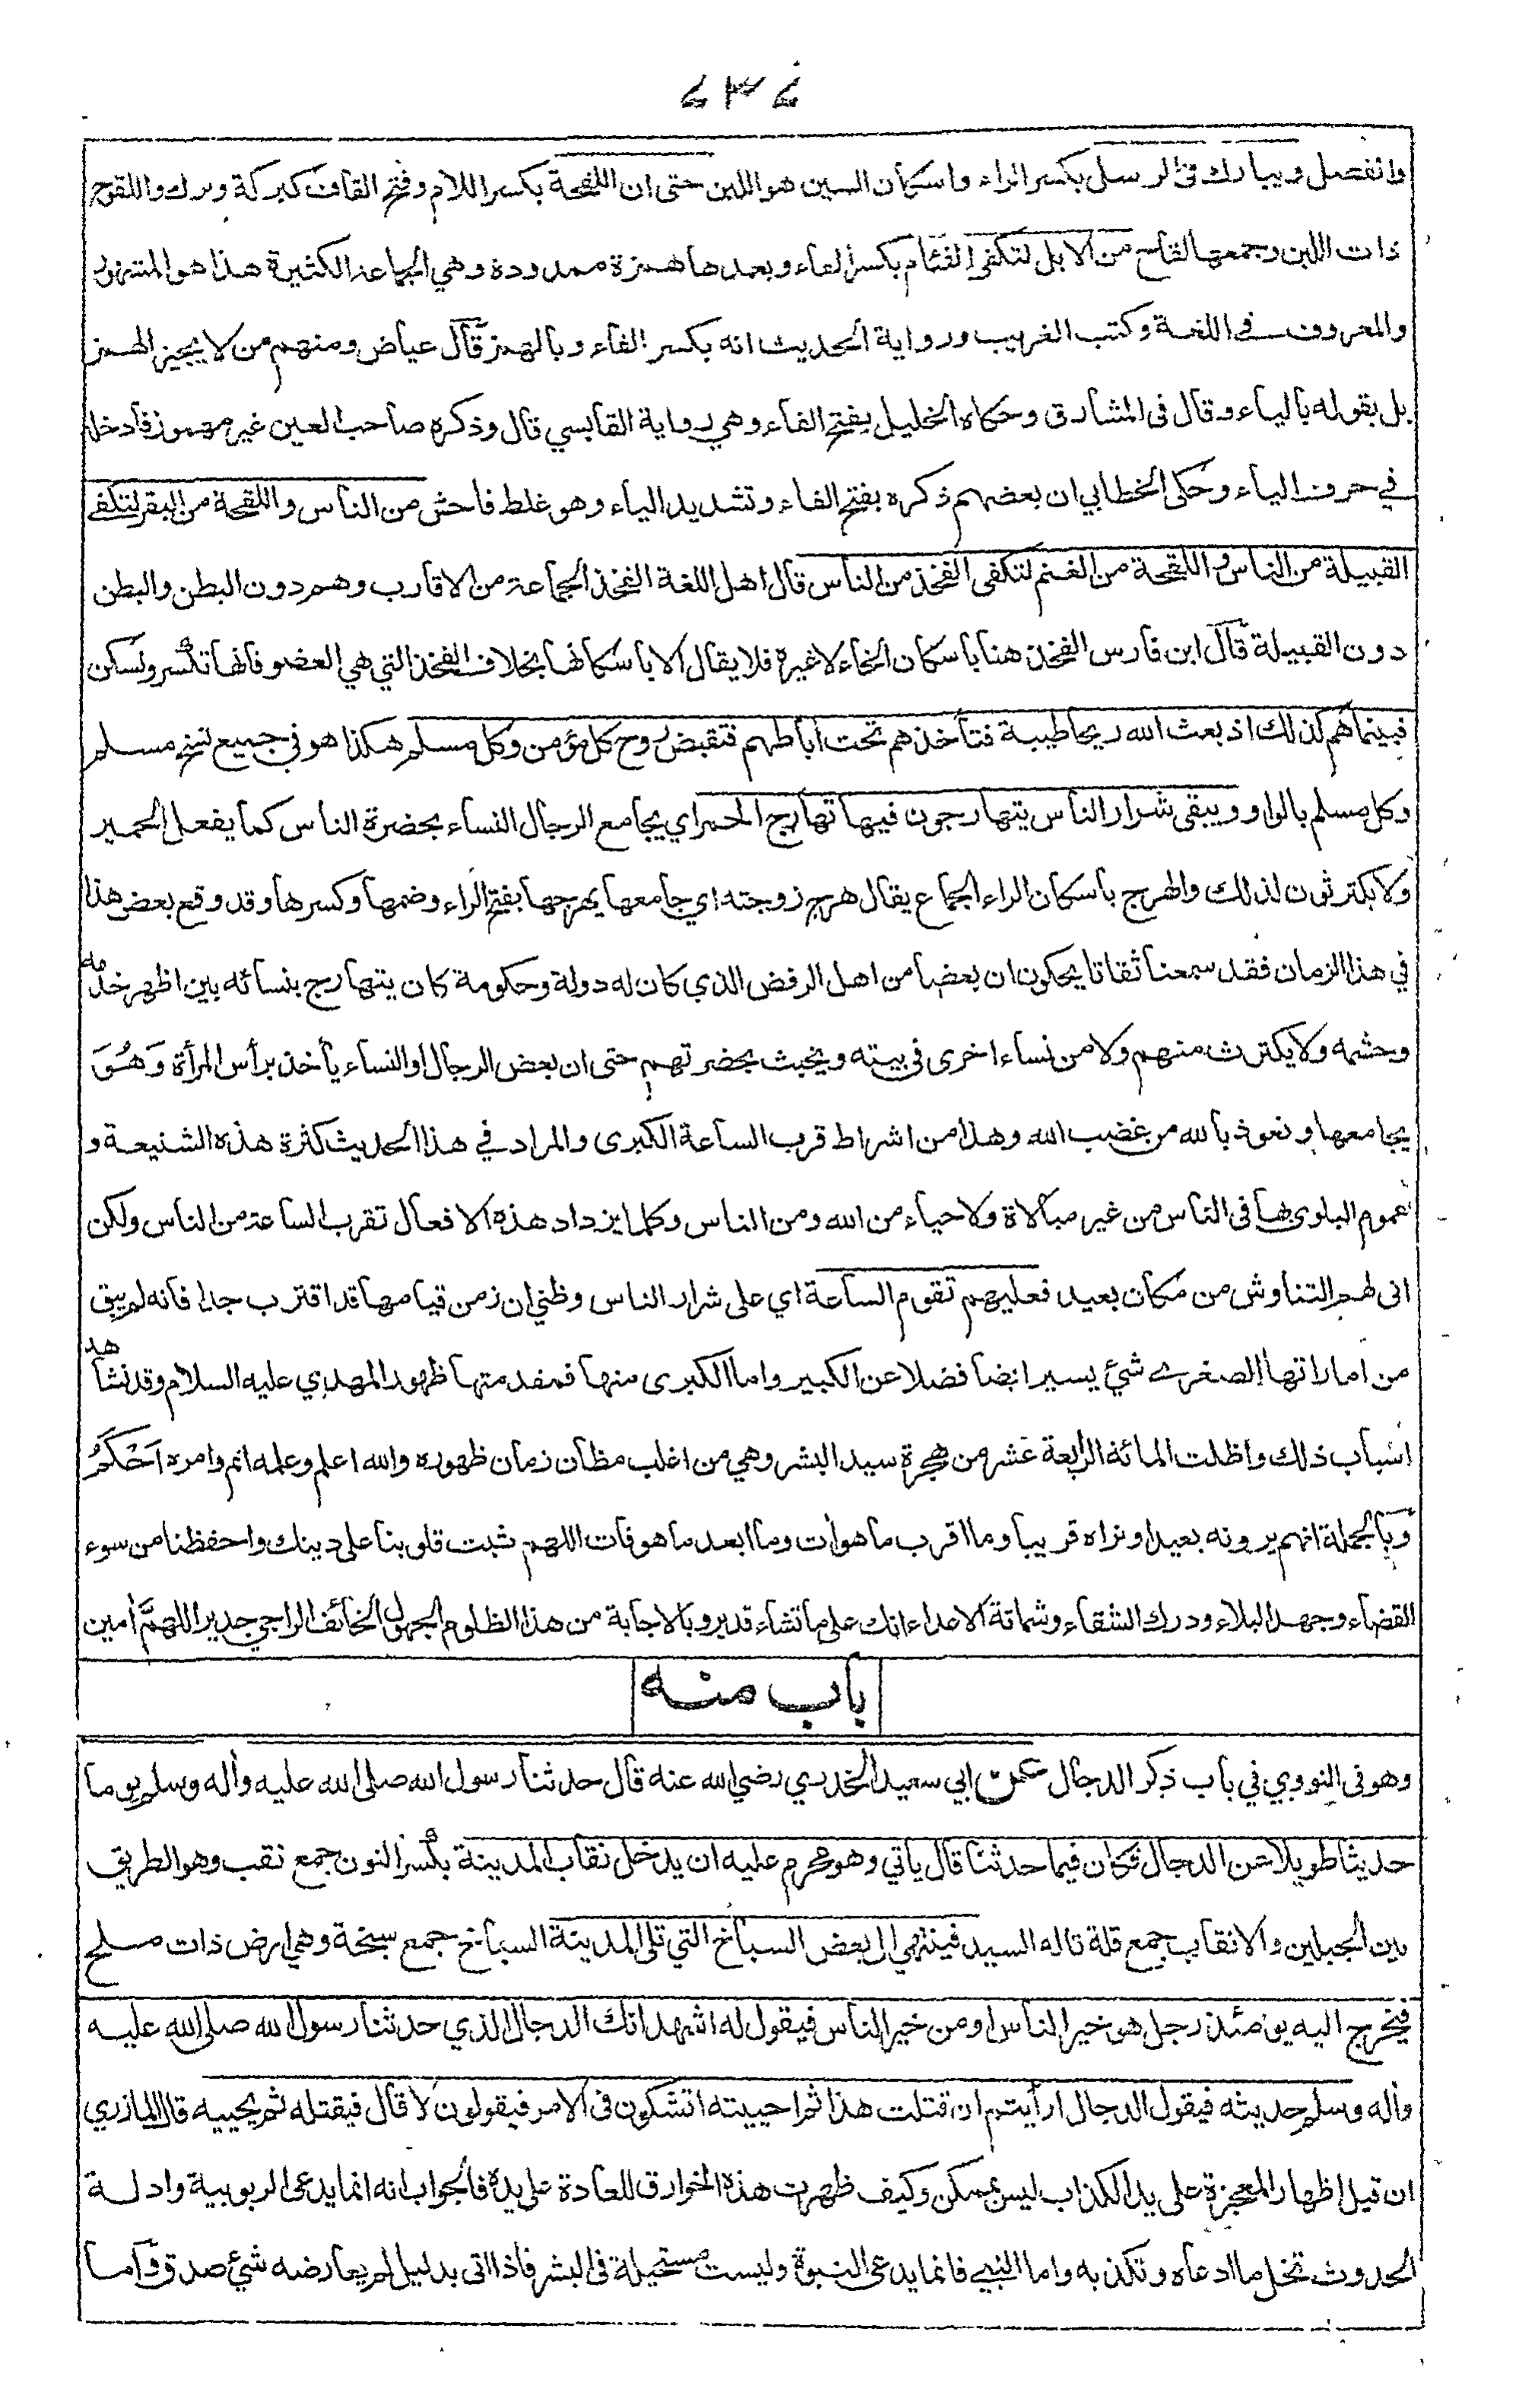 وانفصل ويبارك في الرسل بكسر الراء واسكان السين هو اللبن حتى ان اللقحة بكسر اللام وفتح القاف كبركة وبرك واللقوح
ذات اللبن وجمعها لقاح من الابل لتكفي الفئام بكسر الفاء وبعدها همزة ممدودة وهي الجماعة الكثيرة هذا هو المشهور
والمعروف في اللغة وكتب الغريب ورواية الحديث انه بكسر الفاء وبالهمز قال عياض ومنهم من لا يجيز الهمز
بل يقوله بالياء وقال في المشارق وحكاه الخليل بفتح الفاء وهي رواية القابسي قال وذكره صاحب العين غير مهموز فادخله
في حرف الياء وحكى الخطابي ان بعضهم ذكره بفتح الفاء وتشديد الياء وهو غلط فاحش من الناس واللقحة من البقر لتكفي
القبيلة من الناس واللقحة من الغنم لتكفي الفخذ من الناس قال اهل اللغة الفخذ الجماعة من الاقارب وهم دون البطن والبطن
دون القبيلة قال ابن فارس الفخذ هنا باسكان الخاء لا غيره فلا يقال الا باسكانها بخلاف الفخذ التي هي العضو فانها تكسر وتسكن
فبينما هم كذلك اذ بعث الله ريحا طيبة فتأخذهم تحت أباطهم فتقبض روح كل مؤمن وكل مسلم هكذا هو في جميع نسخ مسلم
وكل مسلم بالواو ويبقى شرار الناس يتهارجون فيها تهارج الحمر اي يجامع الرجال النساء بحضرة الناس كما يفعل الحمير
ولا يكترثون لذلك والهرج باسكان الراء الجماع يقال هرج زوجته اي جامعها يهرجها بفتح الراء وضمها وكسرها وقد وقع بعض هذا
في هذا الزمان فقد سمعنا ثقاتا يحكون ان بعضا من اهل الرفض الذي كان له دولة وحكومة كان يتهارج بنسائه بين اظهر خدمه
وحشمه ولا يكترث منهم ولا من نساء اخرى في بيته ويخبث بحضرتهم حتى ان بعض الرجال او النساء يأخذ برأس المرأة وَهُوَ
يجامعها ونعوذ بالله من غضب الله وهذا من اشراط قرب الساعة الكبرى والمراد في هذا الحديث كثرة هذه الشنيعة و
عموم البلوى بها في الناس من غير مبالاة ولا حياء من الله ومن الناس وكلما يزداد هذه الافعال تقرب الساعة من الناس ولكن
انى لهم التناوش من مكان بعيد فعليهم تقوم الساعة اي على شرار الناس وظني ان زمن قيامها قد اقترب جدا فانه لم يبق
من اماراتها الصغرى شيئ يسير ايضا فضلا عن الكبير واما الكبرى منها فمقدمتها ظهور المهدي عليه السلام وقد نشاهد
اسباب ذلك واظلت المائة الرابعة عشر من هجرة سيد البشر وهي من اغلب مظان زمان ظهوره والله اعلم وعلمه اتم وامره اَحْكَمُ
وبالجملة انهم يرونه بعيدا ونراه قريبا وما اقرب ما هو أت وما ابعد ما هو فات اللهم ثبت قلوبنا على دينك واحفظنا من سوء
القضاء وجهد البلاء ودرك الشقاء وشماتة الاعداء انك على ما تشاء قدير وبالاجابة من هذا الظلوم الجهول الخائف الراجي جدير اللهمَّ أمين
باب منه
وهو في النووي في باب ذكر الدجال عن ابي سعيد الخدري رضي الله عنه قال حدثنا رسول الله صلى الله عليه وأله وسلم يوما
حديثا طويلا عن الدجال فكان فيما حدثنا قال يأتي وهو محرم عليه ان يدخل نقاب المدينة بكسر النون جمع نقب وهو الطريق
بين الجبلين والانقاب جمع قلة قاله السيد فينتهي الى بعض السباخ التي تلي المدينة السباخ جمع سبخة وهي ارض ذات ملح
فيخرج اليه يومئذ رجل هو خير الناس او من خير الناس فيقول له اشهد انك الدجال الذي حدثنا رسول الله صلى الله عليه
وأله وسلم حديثه فيقول الدجال ارأيتم ان قتلت هذا ثم احييته اتشكون في الامر فيقولون لا قال فيقتله ثم يحييه قال المازري
ان قيل اظهار المعجزة على يد الكذاب ليس بممكن وكيف ظهرت هذه الخوارق للعادة على يده فالجواب انه انما يدعى الربوبية وادلة
الحدوث تخل ما ادعاه وتكذبه واما النبي فانما يدعى النبوة وليست مستحيلة في البشر فاذا اتى بدليل لم يعارضه شيئ صدق واما